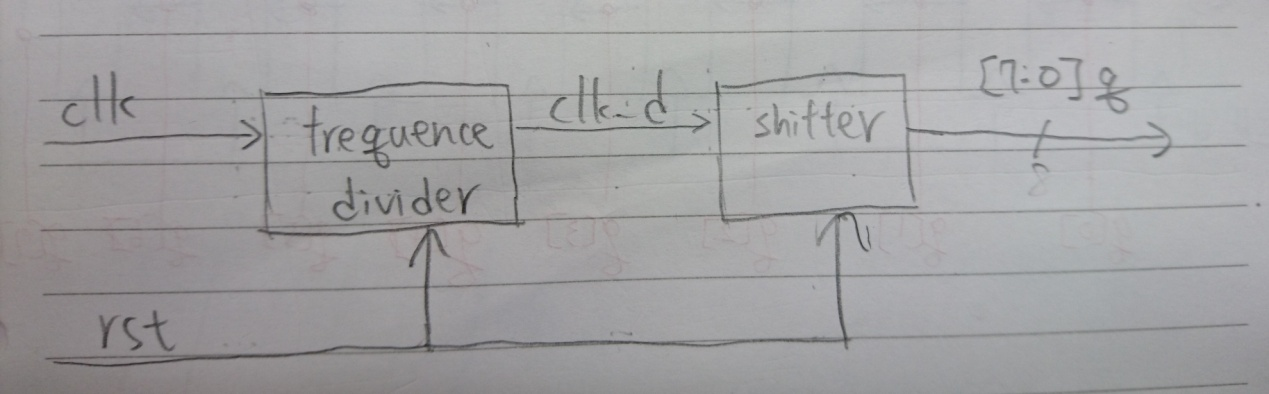 clk
frequence
divider
clk_d
shifter
[7:0] q
8
rst